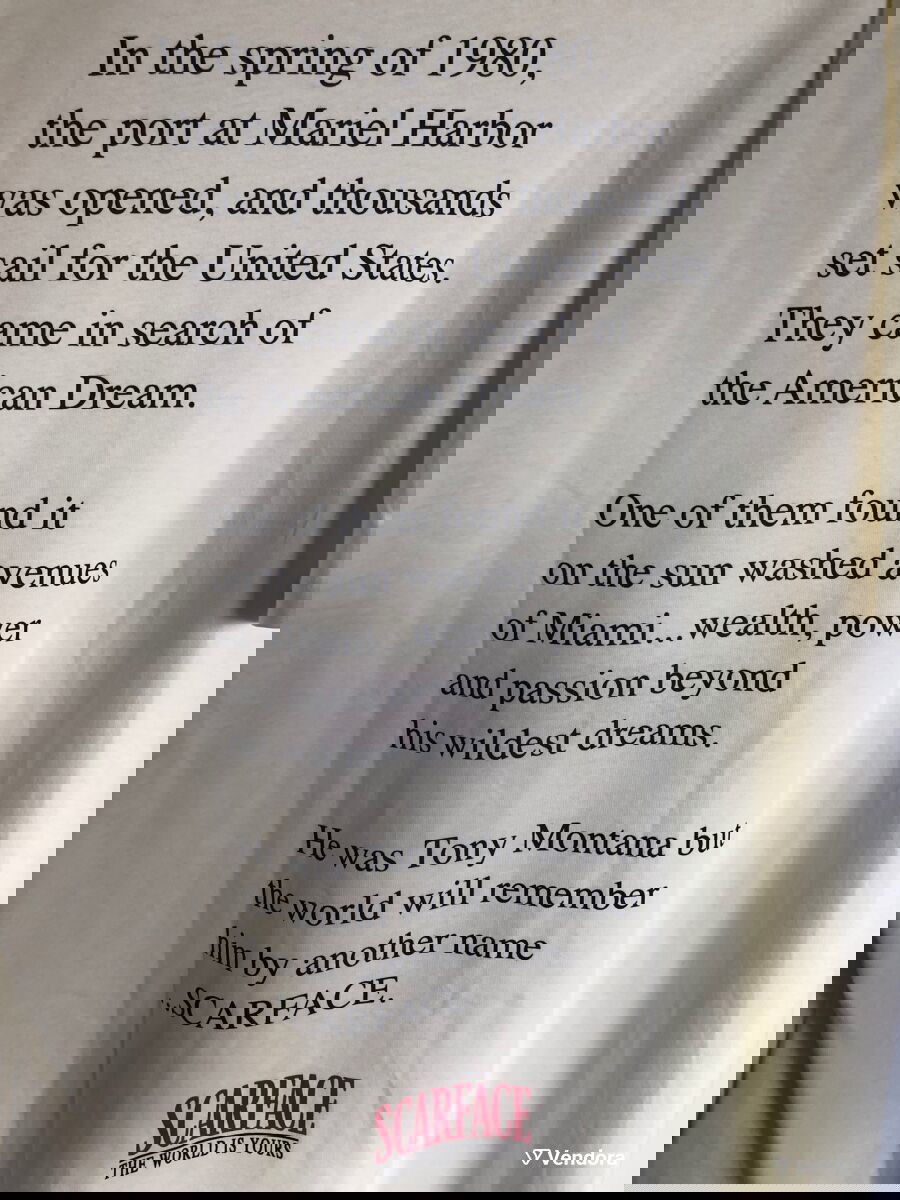 In the spring of 1980,
the port at Mariel Harbor
was opened, and thousands
set sail for the United States.
They came in search of
the American Dream.
One of them found it
on the sun washed avenues
of Miami...wealth, power
and passion beyond
his wildest dreams.
He was Tony Montana but
the world will remember
him by another name
...SCARFACE.
SCARFACE
THE WORLD IS YOURS
SCARFACE
Vendora